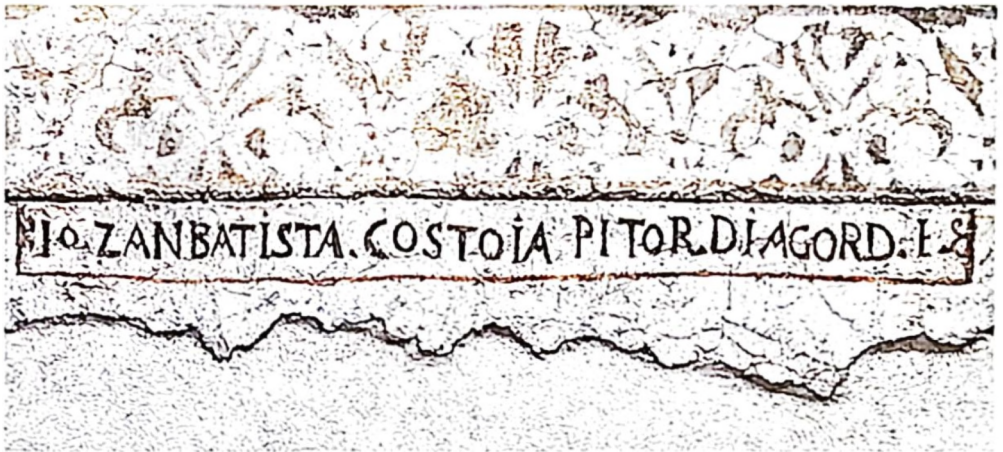 IO ZANBATISTA. COSTOIA PITOR. DI AGORD.